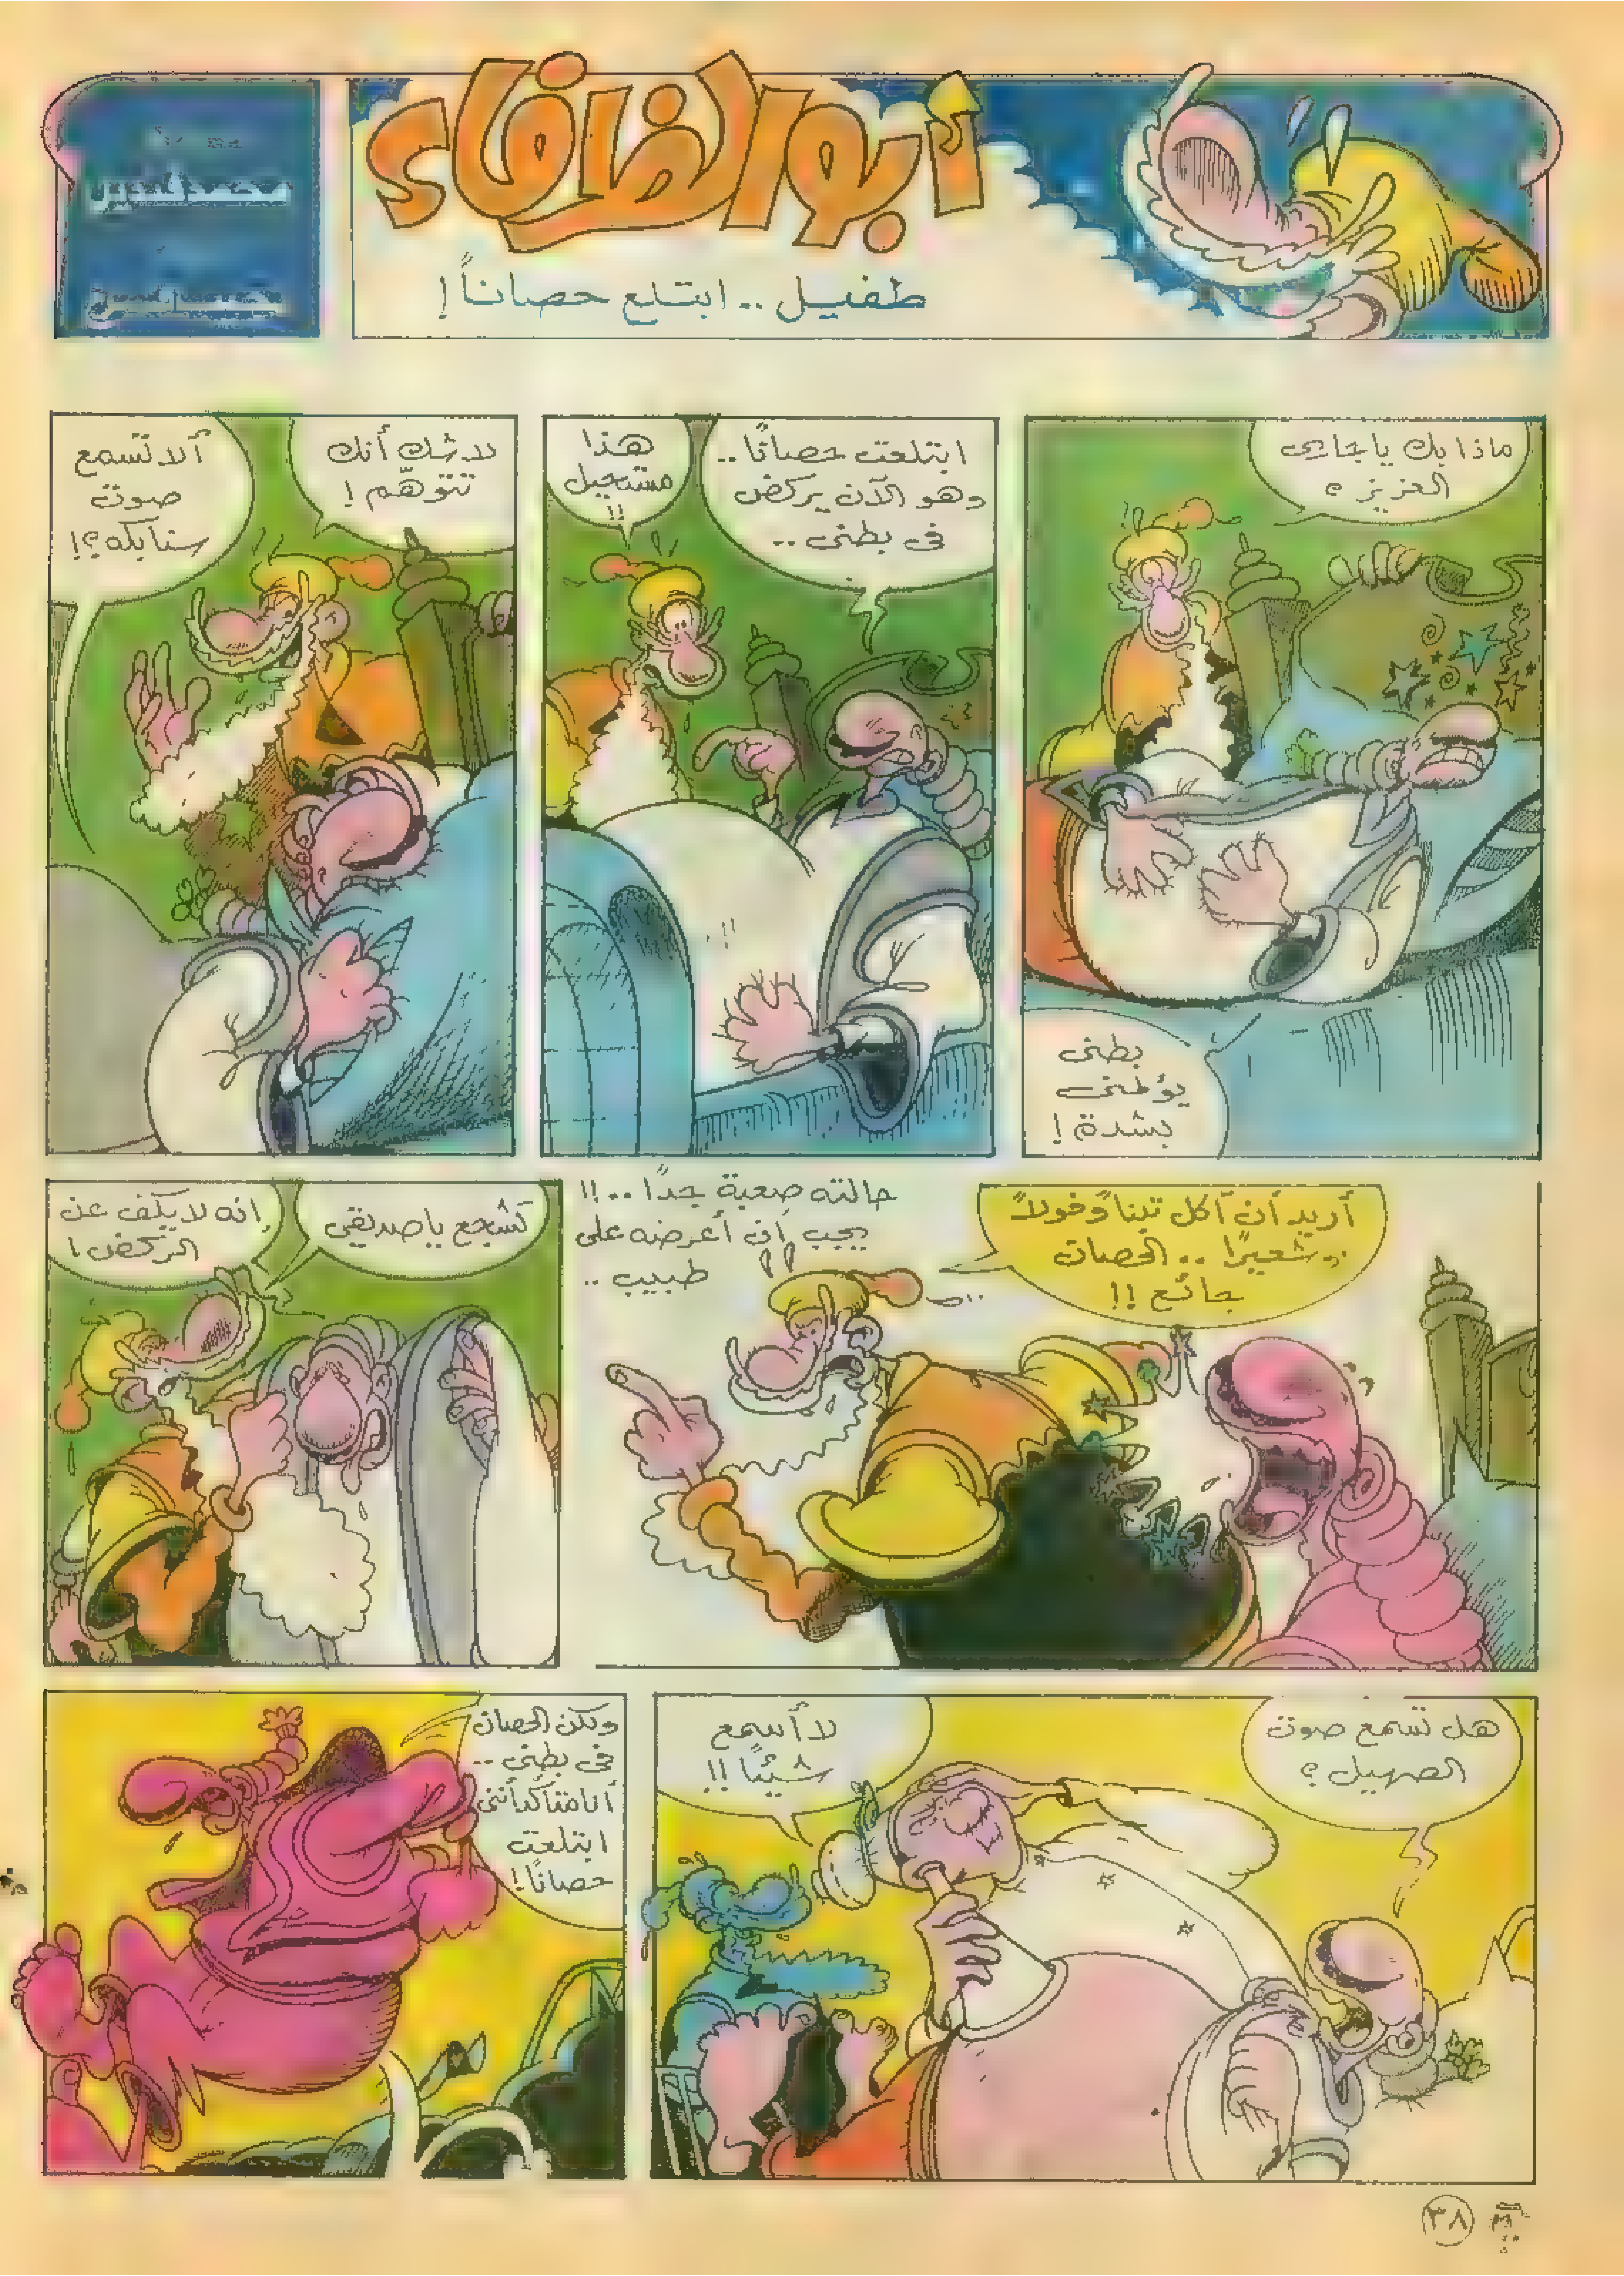 أبو الظرفاء
طفيل .. ابتلع حصاناً !
ماذا بك يا جاري
العزيز ؟
بطنى
يؤلمنى
بشدة !
ابتلعت حصانًا ..
وهو الآن يركض
فى بطنى ..
هذا
مستحيل
!!
لا شك أنك
تتوهّم !
ألا تسمع
صوت
سنابكه ؟!
أريد أن آكل تبنًا وفولاً
وشعيرًا .. الحصان
جائع !!
حالته صعبة جدًا ..!!
يجب أن أعرضه على
طبيب ..
تشجع يا صديقي
إنه لا يكف عن
الركض !
هل تسمع صوت
الصهيل ؟
لا أسمع
شيئًا !!
ولكن الحصان
فى بطنى ..
أنا متأكد أننى
ابتلعت
حصانًا !
٣٨